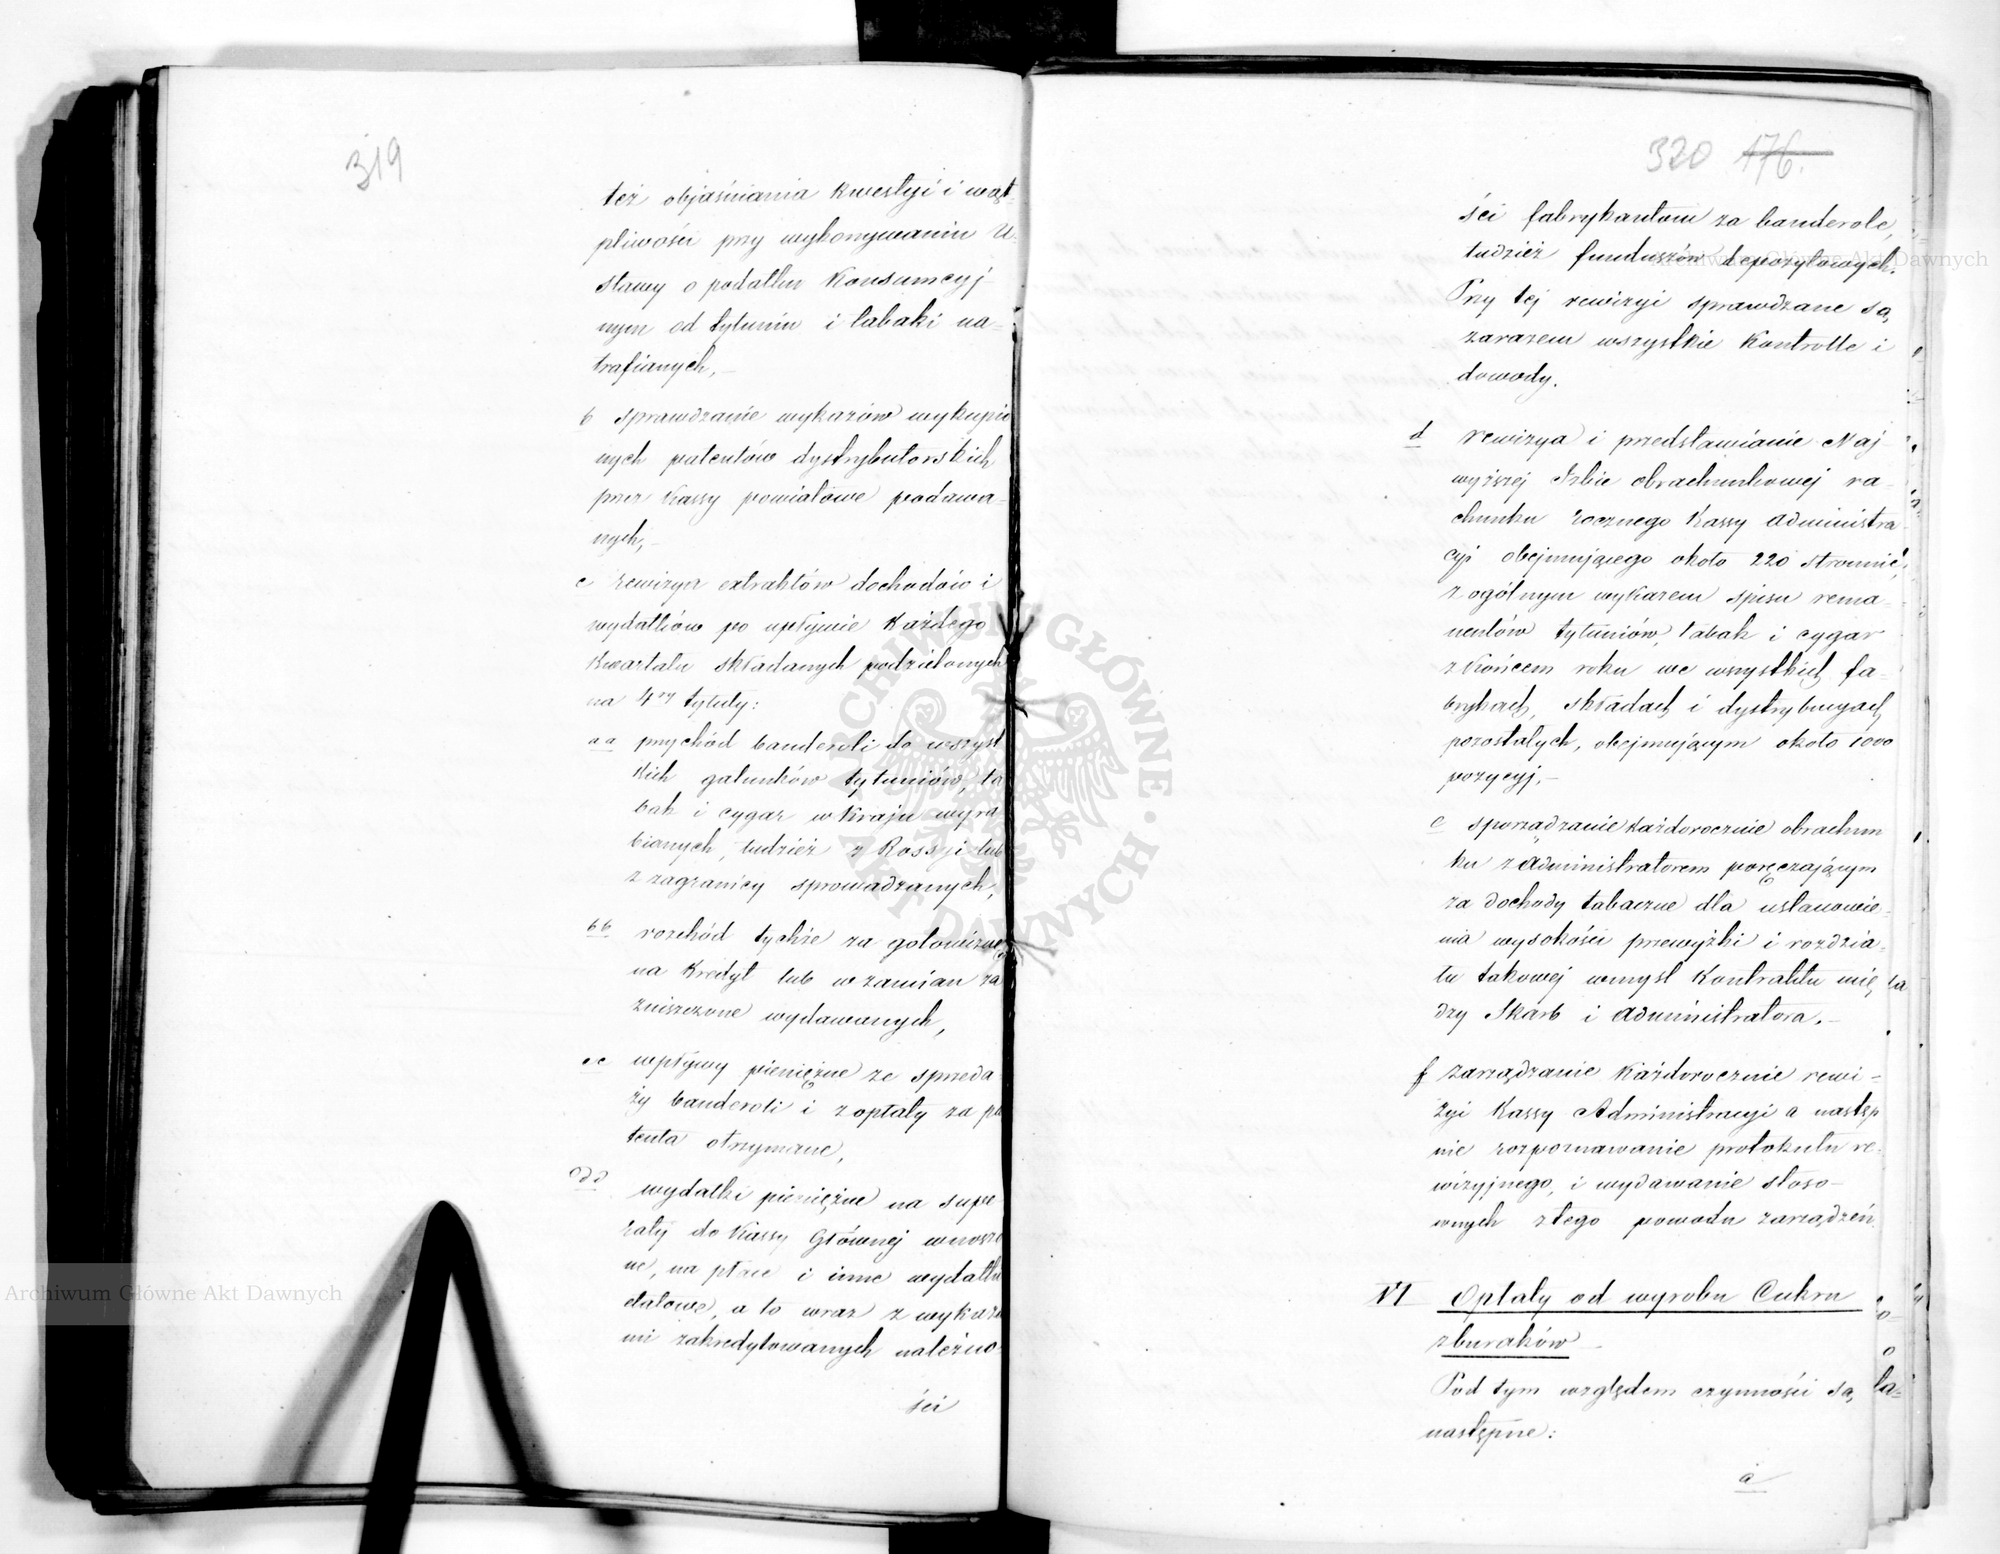 319
też objaśniania Kwestyi i wąt-
pliwości przy wykonywaniu U-
stawy o podatku Konsumcyj-
nym od tytuniu i tabaki na-
trafianych,
b sprawdzanie wykazów wykupio
nych patentów dystrybutorskich
przez Kassy powiatowe podawa-
nych,
c rewizya extraktów dochodów i
wydatków po upływie Każdego
Kwartału składanych podzielonych
na 4ry tytuły:
aa przychód banderoli do wszyst
Kich gatunków tytuniów, ta
bak i cygar w Kraju wyra
bianych, tudzież z Rossyi lub
z zagranicy sprowadzanych,
bb rozchód tychże za gotowiznę
na Kredyt lub w zamian za
zniszczone wydawanych,
cc wpływy pieniężne ze sprzeda-
ży banderoli i z opłaty za pa
tenta otrzymane,
dd wydatki pieniężne na supe
raty do Kassy Głównej wnoszo
ne, na płace i inne wydatki
etatowe, a to wraz z wykaza
mi zakredytowanych należno-
ści
320 176.
ści fabrykantom za banderole,
tudzież funduszów depozytowych.
Przy tej rewizyi sprawdzane są
zarazem wszystkie Kontrolle i
dowody.
d rewizya i przedstawianie Naj
wyższej Izbie obrachunkowej ra-
chunku rocznego Kassy Administra-
cyi obejmującego około 220 stronnic,
z ogólnym wykazem spisu rema-
nentów tytuniów, tabak i cygar
z Końcem roku we wszystkich fa-
brykach, składach i dystrybucyach
pozostałych, obejmującym około 1000
pozycyj,
e sporządzanie każdorocznie obrachun
ku z Administratorem poręczającym
za dochody tabaczne dla ustanowie-
nia wysokości przewyżki i rozdzia-
łu takowej w myśl Kontraktu mię
dzy Skarb i Administratora.
f zarządzanie Każdorocznie rewi-
zyi Kassy Administracyi a następ
nie rozpoznawanie protokułu re-
wizyjnego, i wydawanie stoso-
wnych z tego powodu zarządzeń
VI Opłaty od wyrobu Cukru
z buraków
Pod tym względem czynności są
następne:
a
Archiwum Główne Akt Dawnych
Archiwum Główne Akt Dawnych
ARCHIWUM GŁÓWNE AKT DAWNYCH